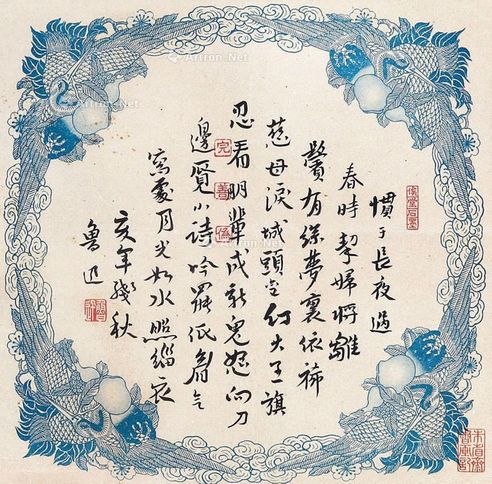 慣于長夜過
春時挈婦將雛
鬢有絲夢裏依稀
慈母淚城頭変幻大王旗
忍看朋輩成新鬼怒向刀
邊覓小詩吟罷低眉无
寫處月光如水照緇衣
亥年殘秋
魯迅
Artron.Net